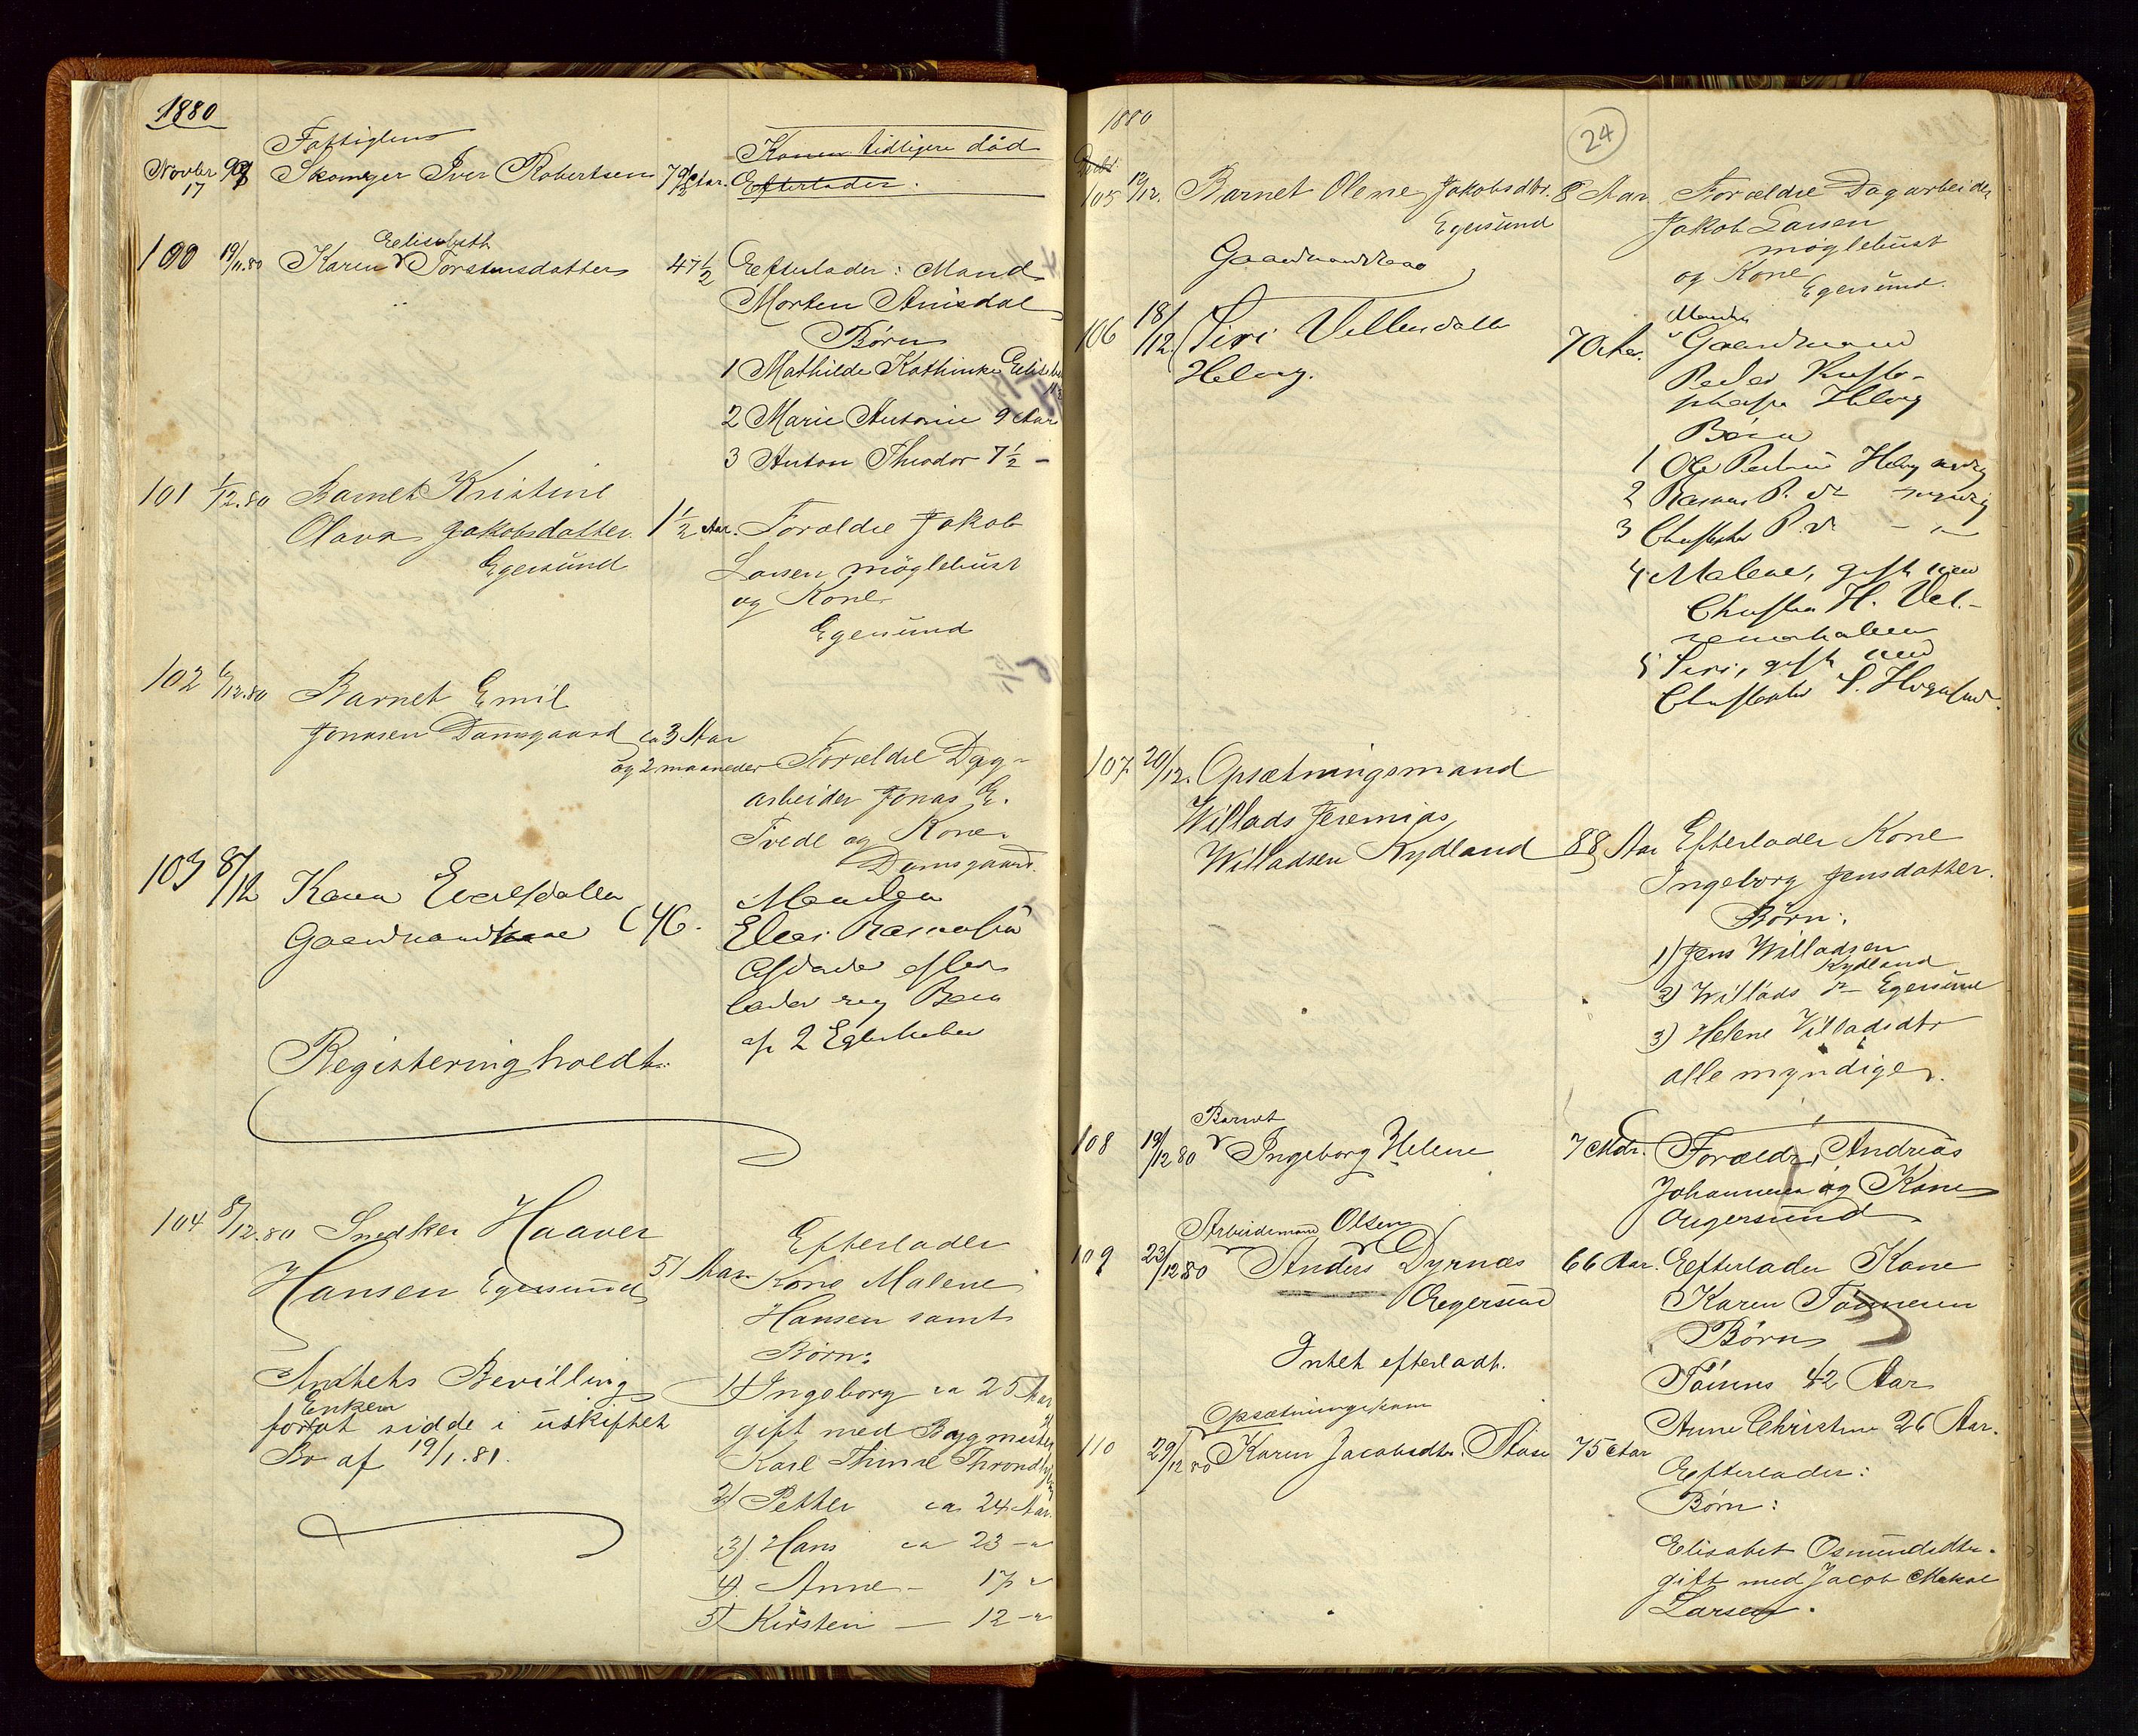 1880
Fattiglem
Novbr 17 99 Skomager Iver Robertsen 79½ Aar. Konen tidligere död
Efterlader.
100 19/11.80 Karen Elisabeth Torstensdatter 47½ Efterlader: Mand
Morten Aniisdal
Börn
1 Mathilde Kathinka Elisab
2 Marie Antonie 9 Aar
3 Anton Theodor 7½ -
101 1/12.80 Barnet Kristine
Olava Jakobsdatter 1½ Aar. Forældre Jakob
Egersund Larsen möglebust
og Kone
Egersund
102 6/12.80 Barnet Emil
Jonasen Damsgaard ca 3 Aar
og 2 maaneder Forældre Dag-
arbeider Jonas E.
Tvede og Kone
Damsgaard.
103 8/12 Karen
Gaardmandskone 46. Manden
Elias Rasmussen
efter
lader sig Børn
af 2 Egteskaber
Registering holdt.
104 8/12.80 Snedker Haaver
Hansen Egersund 51 Aar Efterlader
Kone Malene
Hansen samt
Börn:
1) Ingeborg ca 25 Aar
gift med Bygmester
Karl Thime Throndhjem
2) Petter ca 24 Aar.
3) Hans ca 23 -"
4) Anne - 17 "
5) Kirsten — 12 -"
Amtets Bevilling
for Enken at sidde i uskiftet
Bo af 19/1.81.
1880
24
Decbr.
105 12/12. Barnet Olene Jakobsdtr. 8 Aar Forældre Dagarbeider
Egersund Jakob Larsen
möglebust
og Kone
Egersund.
Gaardmandskone
106 18/12. Siri Villumsdatter
Helvig. 70 Aar. Manden
Gaardmand
Peder Kristo-
phersen Helvig
Børn
1 Ole Pedersen Helvig myndig
2 Rasmus P. do myndig
3 Christopher P. do - "
4 Malene, gift med
Christian H.
5 Siri, gift med
107. 20/12. Opsætningsmand
Willads Jeremias
Willadsen Rydland 88 Aar Efterlader Kone
Ingeborg Jensdatter.
Börn:
1) Jens Willadsen
Rydland
2) Willads do Egersund
3) Helene Villadsdtr
alle myndige.
108 19/12 80 Barnet
Ingeborg Helene 7 Mdr. Forældr. Andreas
Johannesen og Kone
Eegersund
109 23/12 80 Arbeidsmand
Anders Olsen Dyrnæs 66 Aar. Efterlader Kone
Eegersund Karen Tönnesen
Börn
Tönnes 42 Aar
Anne Christine 26 Aar.
Intet efterladt.
Opsætningskone
110 29/12 80 Karen Jacobsdtr. 75 Aar
Efterlader:
Börn:
Elisabet Osmundsdtr.
gift med Jacob Mikal
Larsen.